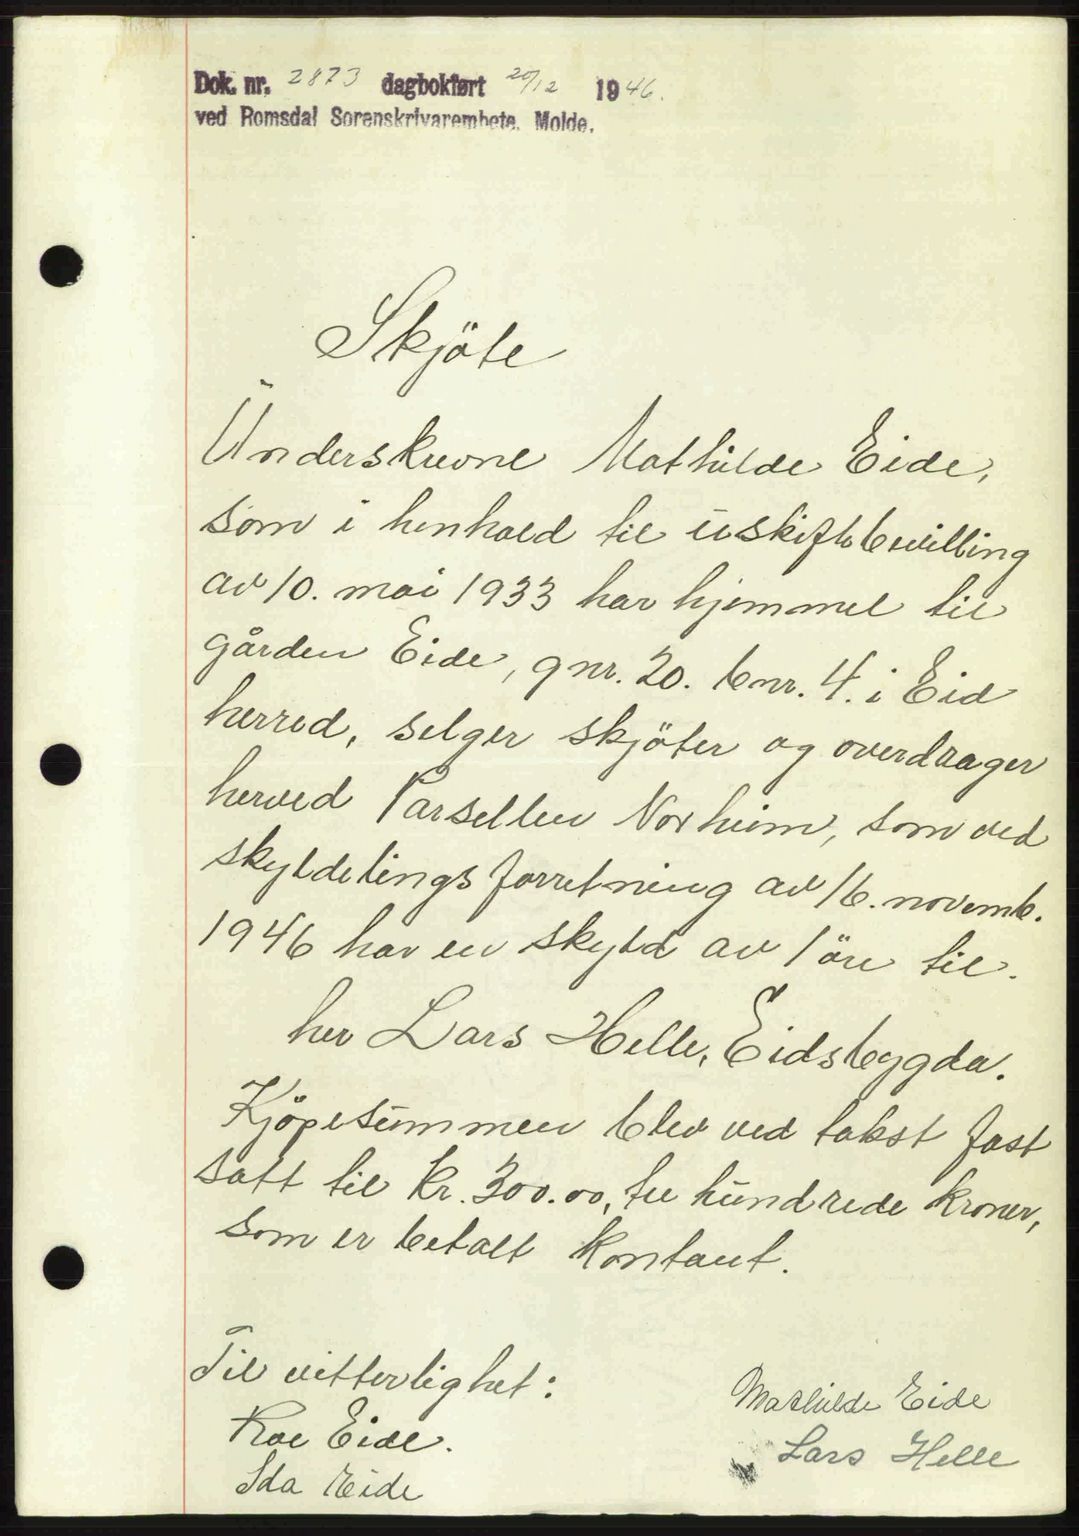 Dok. nr. 2873 dagbokført 20/12 1946.
ved Romsdal Sorenskrivarembete, Molde.
Skjöte
Underskrevne Mathilde Eide,
som i henhold til uskiftebevilling
av 10. mai 1933 har hjemmel til
gården Eide, gnr. 20. bnr. 4. i Eid
herred, selger skjöter og overdrager
herved Parsellen Norheim, som ved
skyldelingsforretning av 16. novemb.
1946 har en skyld av 1 öre til.
her Lars Helle, Eidsbygda.
Kjöpesummen blev ved takst fast
satt til Kr. 300.00, tre hundrede kroner,
som er betalt kontant.
Til vitterlighet:
Mathilde Eide
Eide.
Lars Helle
Ida Eide